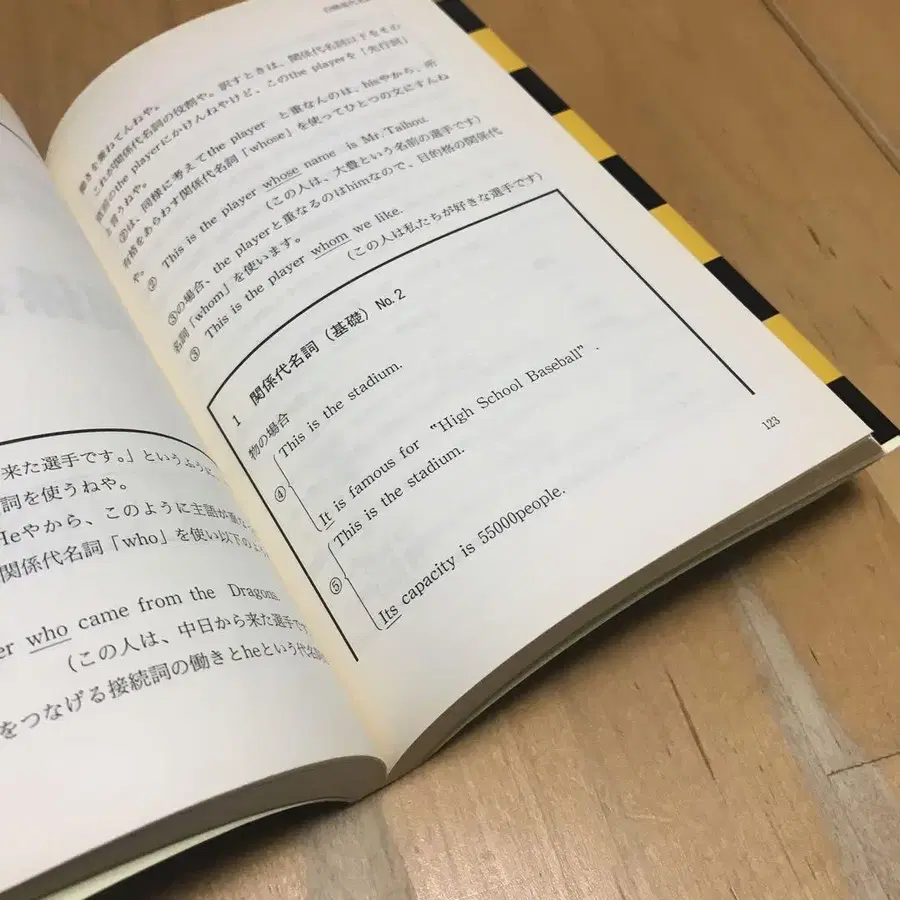 来た選手です。」というふうに、
詞を使うねや。
Heやから、このように主語が
関係代名詞「who」を使い以下のよう
er who came from the Dragons.
(この人は、中日から来た選手です
をつなげる接続詞の働きとheという代名詞
働きを兼ねてんねや。
これが関係代名詞の役割や。訳すときは、関係代名詞以下をその
直前のthe playerにかけんねやけど、このthe playerを「先行詞」
と言うねや。
②は、同様に考えてthe player と重なんのは、hisやから、所
有格をあらわす関係代名詞「whose」を使ってひとつの文にすんね
や。
② This is the player whose name is Mr.Taihou.
(この人は、大豊という名前の選手です)
③の場合、the playerと重なるのはhimなので、目的格の関係代
名詞「whom」を使います。
③ This is the player whom we like.
(この人は私たちが好きな選手です)
1 関係代名詞(基礎)No.2
物の場合
④ This is the stadium.
It is famous for "High School Baseball".
⑤ This is the stadium.
Its capacity is 55000people.
123